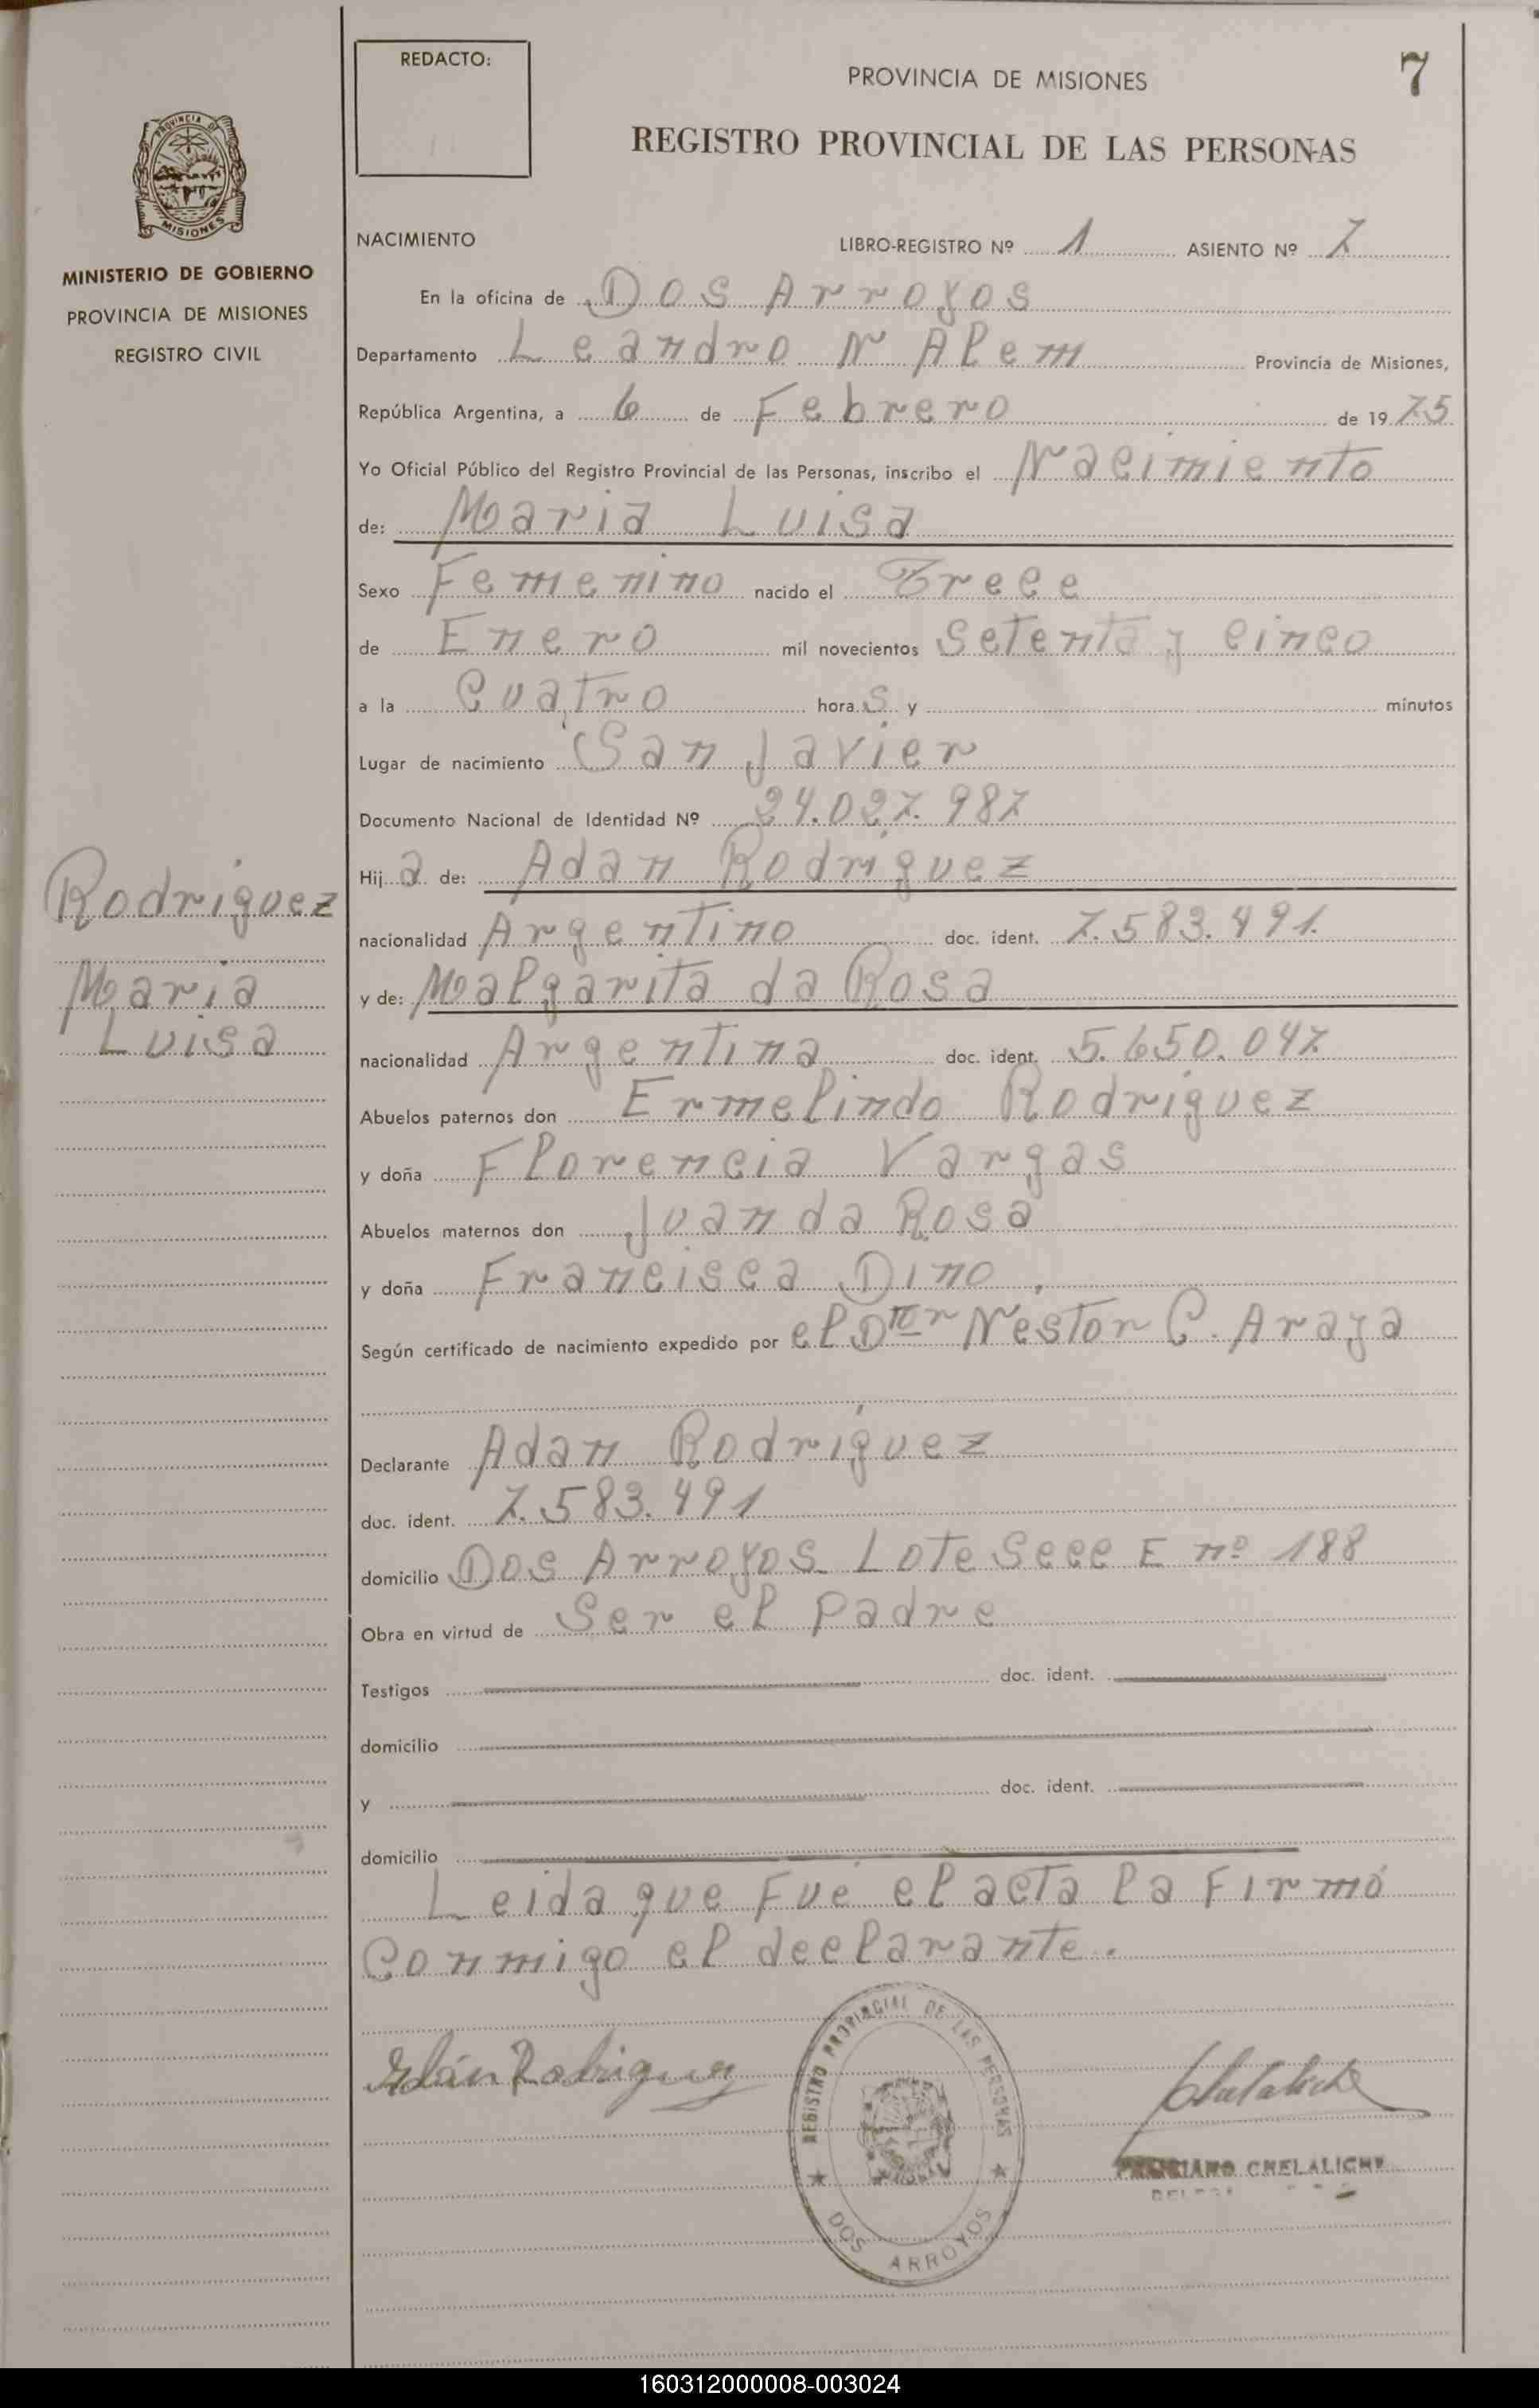 REDACTO:
PROVINCIA DE MISIONES
7
REGISTRO PROVINCIAL DE LAS PERSONAS
PROVINCIA DE
MISIONES
MINISTERIO DE GOBIERNO
PROVINCIA DE MISIONES
REGISTRO CIVIL
NACIMIENTO LIBRO-REGISTRO Nº 1 ASIENTO Nº 7
En la oficina de Dos Arroyos
Departamento Leandro N Alem Provincia de Misiones,
República Argentina, a 6 de Febrero de 1975
Yo Oficial Público del Registro Provincial de las Personas, inscribo el Nacimiento
de: Maria Luisa
Sexo Femenino nacido el Trece
de Enero mil novecientos Setenta y cinco
a la Cuatro horas y minutos
Lugar de nacimiento San Javier
Documento Nacional de Identidad Nº 24.027.987
Hija de: Adan Rodriguez
nacionalidad Argentino doc. ident. 7.583.491.
y de: Malgarita da Rosa
nacionalidad Argentina doc. ident. 5.650.047
Abuelos paternos don Ermelindo Rodriguez
y doña Florencia Vargas
Abuelos maternos don Juan da Rosa
y doña Francisca Dino
Según certificado de nacimiento expedido por el Dtor Nestor C. Araya
Declarante Adan Rodriguez
doc. ident. 7.583.491
domicilio Dos Arroyos Lote Secc E nº 188
Obra en virtud de Ser el padre
Testigos doc. ident.
domicilio
y doc. ident.
domicilio
Leida que fué el acta la firmó
conmigo el declarante.
Rodriguez
Maria
Luisa
Adán Rodriguez
REGISTRO PROVINCIAL DE LAS PERSONAS
DOS ARROYOS
CHELALICHE
160312000008-003024